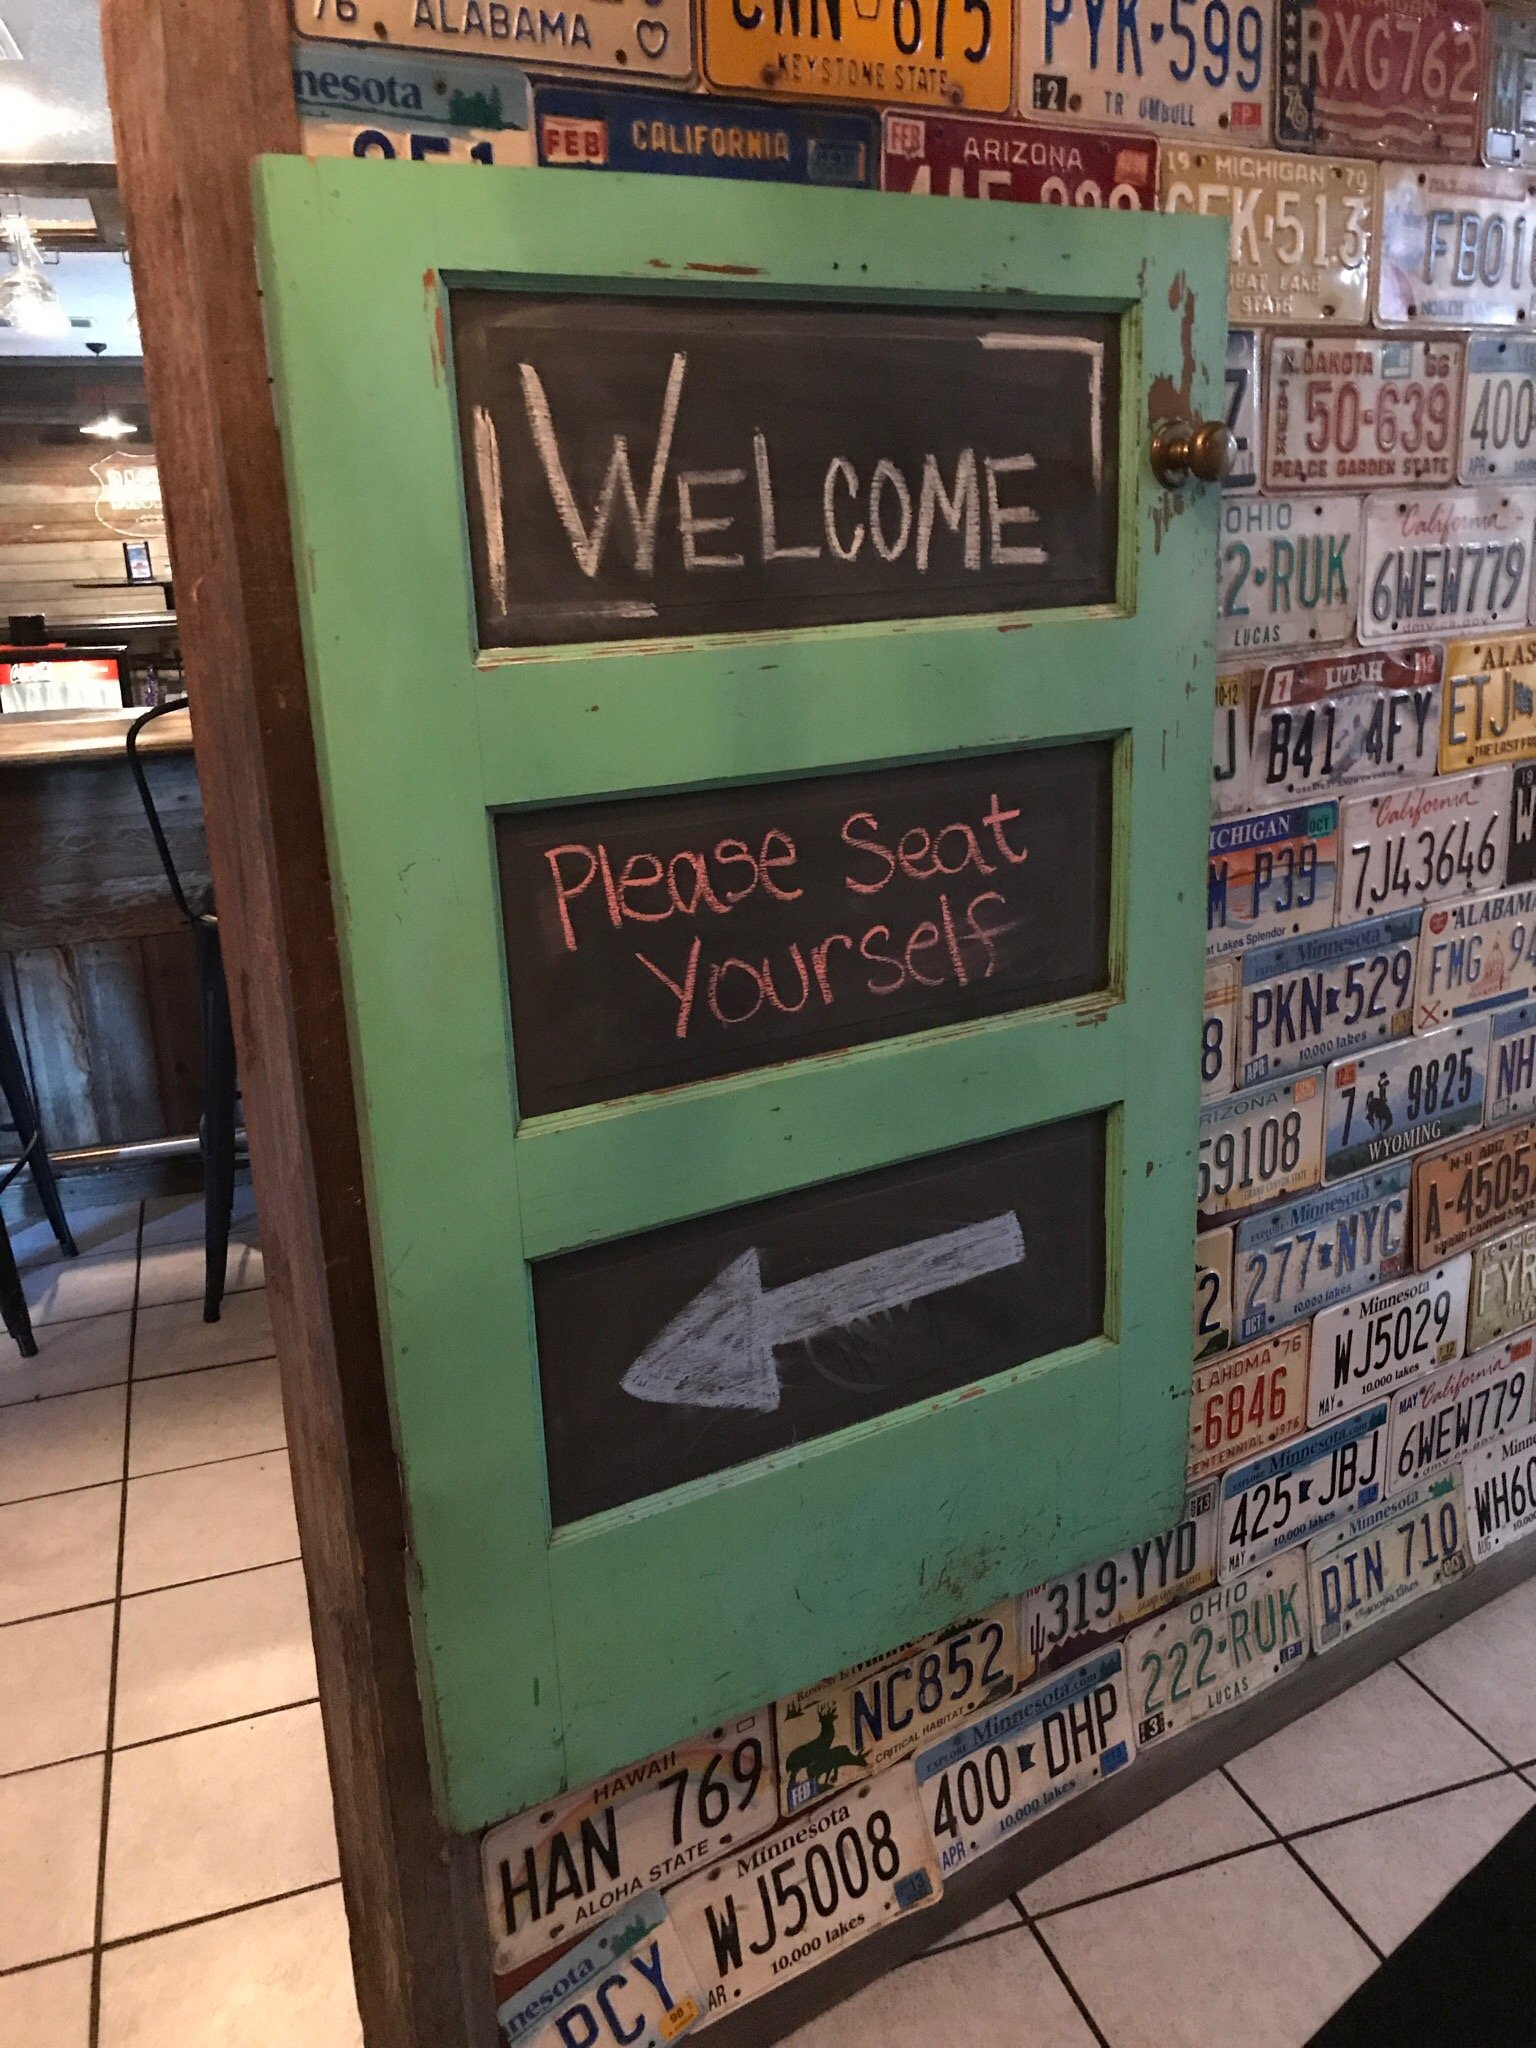 76 ALABAMA
KEYSTONE STATE
PYK 599
RXG762
nesota
FEB CALIFORNIA
FEB ARIZONA
19 MICHIGAN 70
513
STATE
FB01
WELCOME
Please Seat
Yourself
N. DAKOTA 66
50-639
PEACE GARDEN STATE
400
APR
OHIO
2 RUK
LUCAS
California
6WEW779
dmv.ca.gov
UTAH
B41 4FY
ALAS
ETJ
THE LAST
ICHIGAN OCT
M P39
at Lakes Splendor
California
7J43646
ALABAMA
FMG 94
EXPLORE Minnesota
PKN 529
APR 10,000 lakes
RIZONA
59108
GRAND CANYON STATE
7 9825
WYOMING
NH
A-4505
EXPLORE Minnesota
277 NYC
OCT 10,000 lakes
Minnesota
WJ5029
MAY 10,000 lakes
FYR
LAHOMA '76
-6846
CENTENNIAL 1976
MAY California
6WEW779
dmv.ca.gov
EXPLORE Minnesota.com
425 JBJ
MAY 10,000 lakes
Minne
WH60
AUG 10,000
Minnesota
DIN 710
319 YYD
OHIO
222 RUK
LUCAS
NC852
FEB CRITICAL HABITAT
EXPLORE Minnesota.com
400 DHP
APR 10,000 lakes
HAWAII
HAN 769
ALOHA STATE
Minnesota
WJ5008
AR 10,000 lakes
nesota
PCY